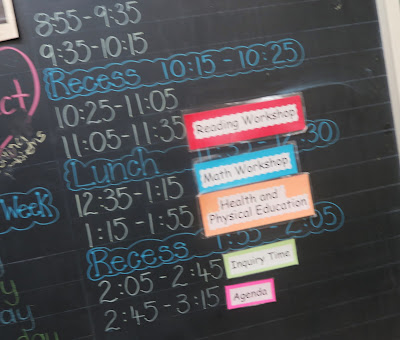 8:55-9:35
9:35-10:15
Recess 10:15-10:25
10:25-11:05
11:05-11:35 Reading Workshop
Lunch :30
12:35-1:15 Math Workshop
1:15-1:55 Health and
Physical Education
Recess 1:55-2:05
2:05-2:45 Inquiry Time
2:45-3:15 Agenda
Week